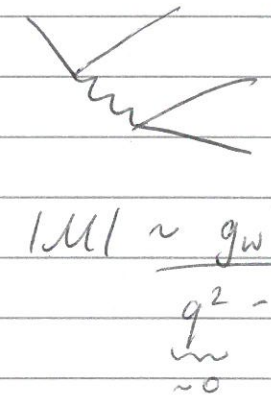 |M| ~ g_w
q² -
~0